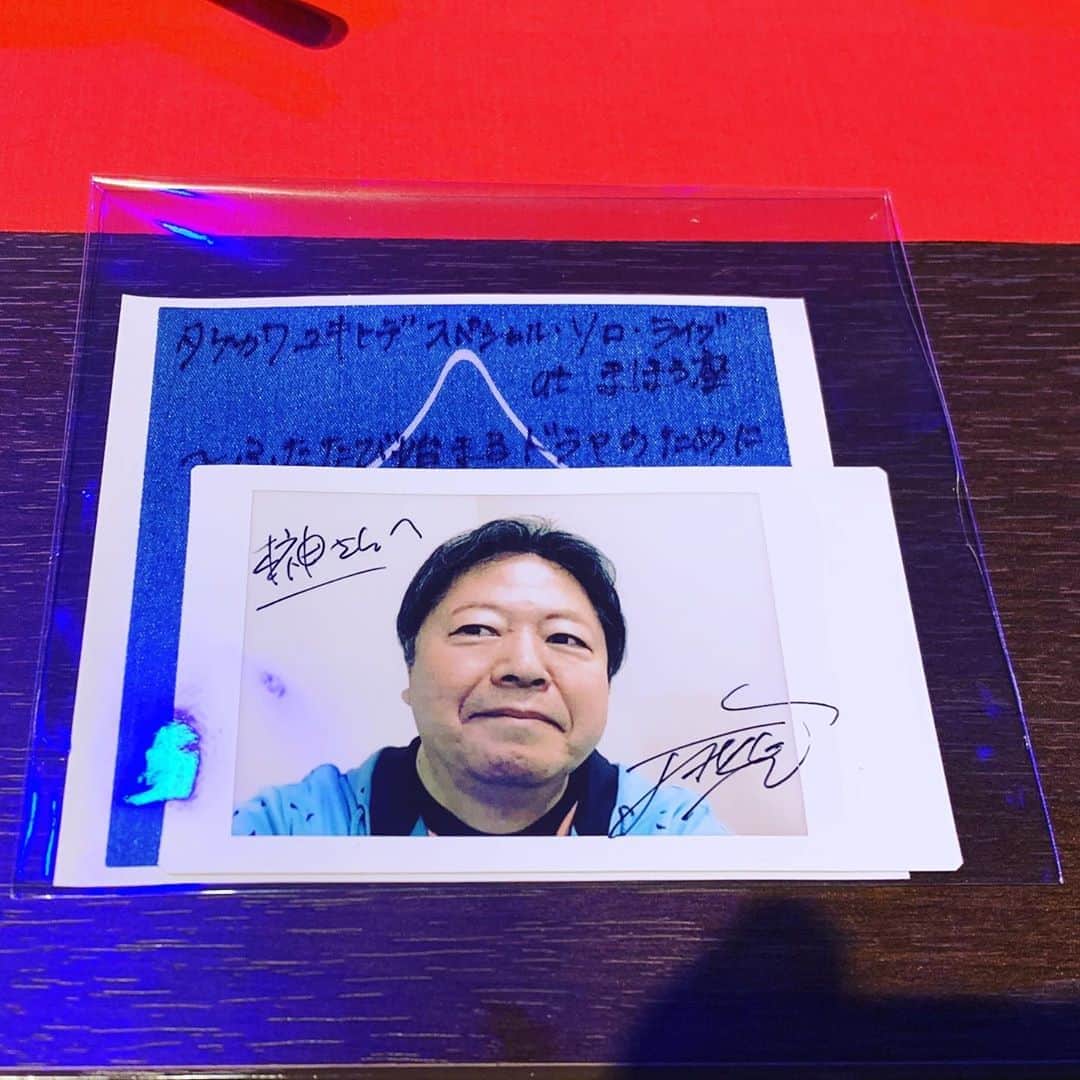 タケカワユキヒデ スペシャル・ソロ・ライブ
at まほろ座
〜ふたたび始まるドラマのために
榊さんへ